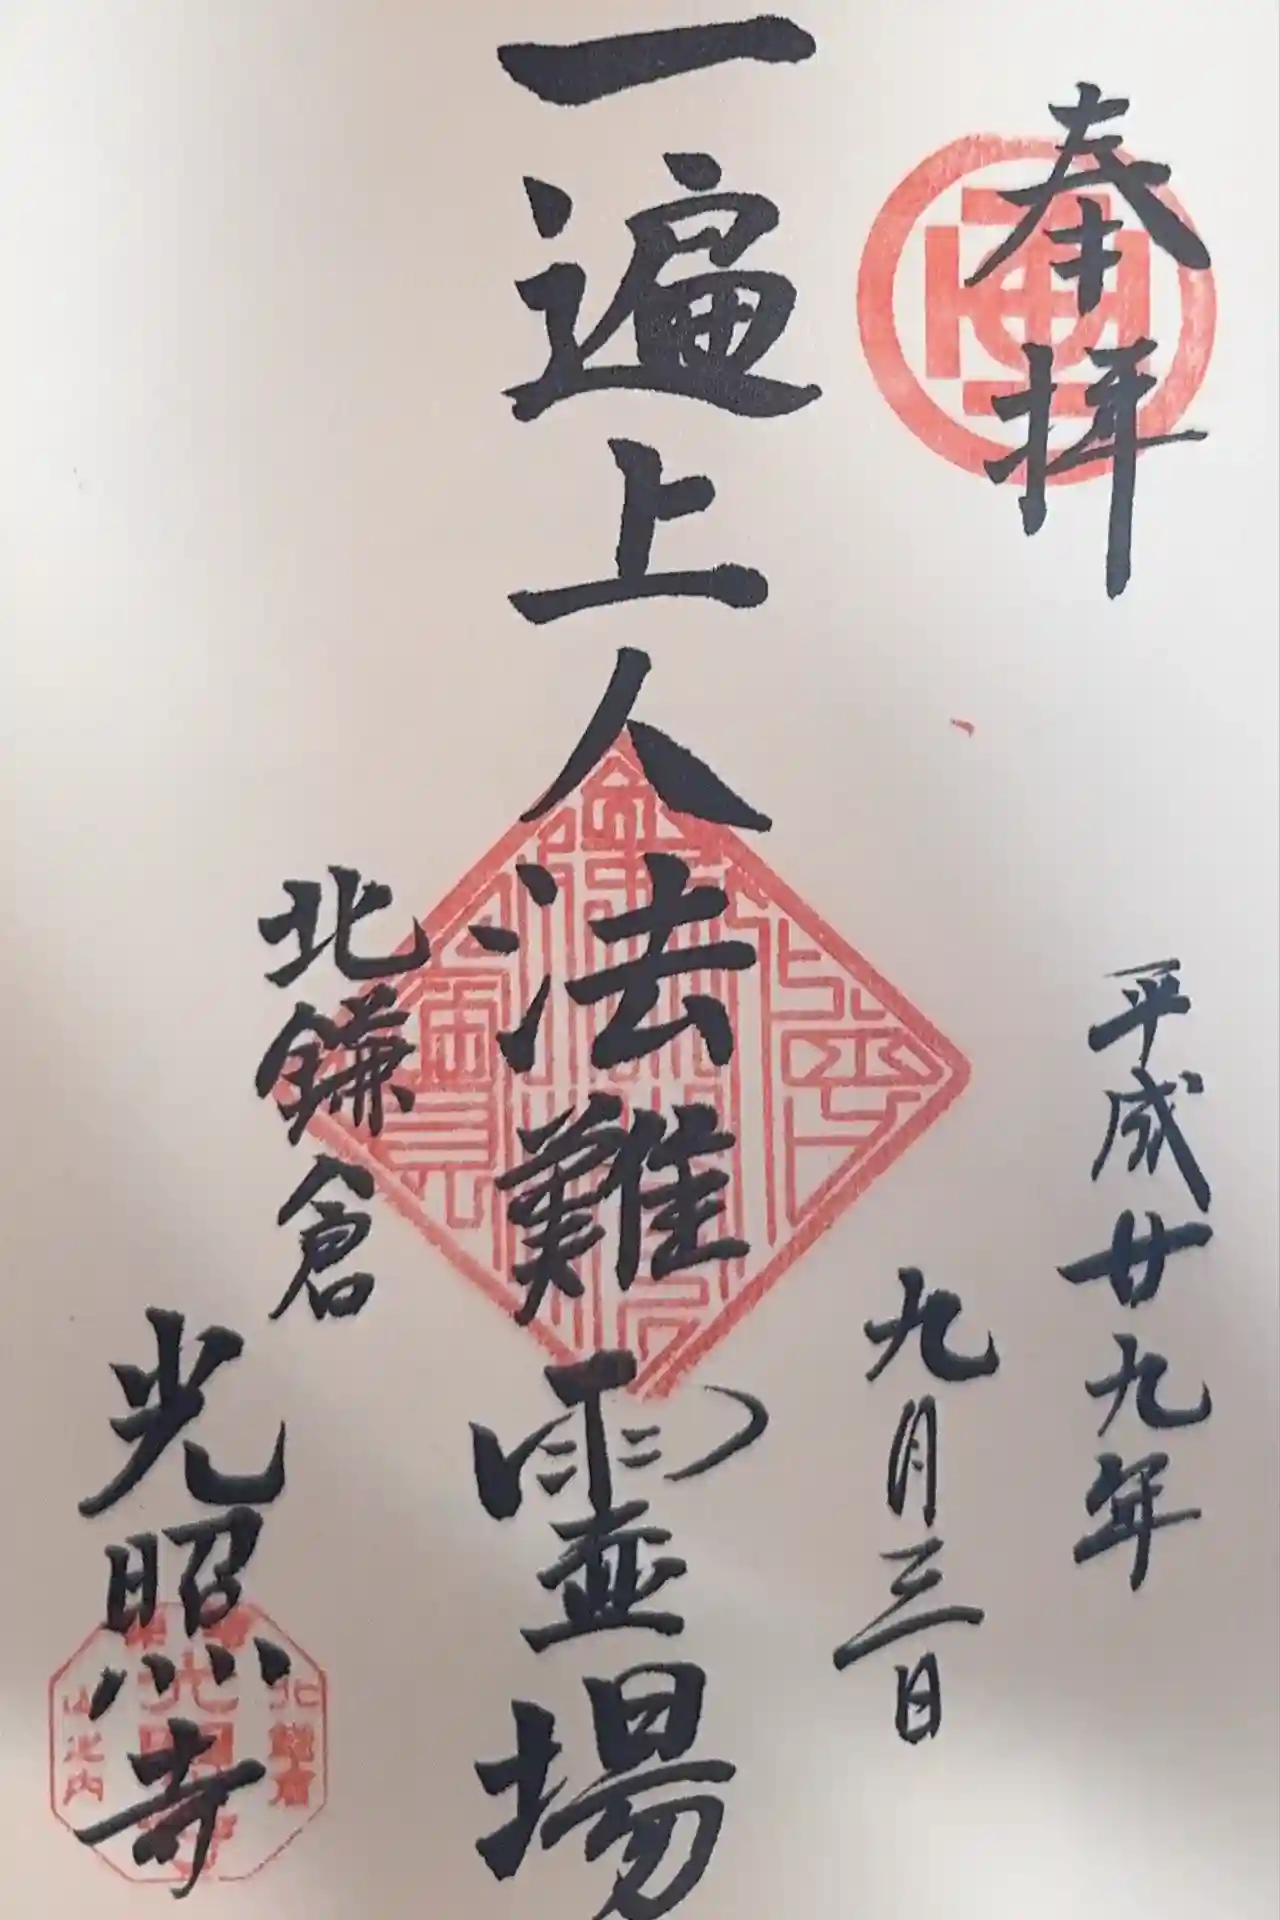 奉拝
平成廿九年
九月三日
一遍上人法難霊場
北鎌倉
光照寺
北鎌倉
光照寺
山之内